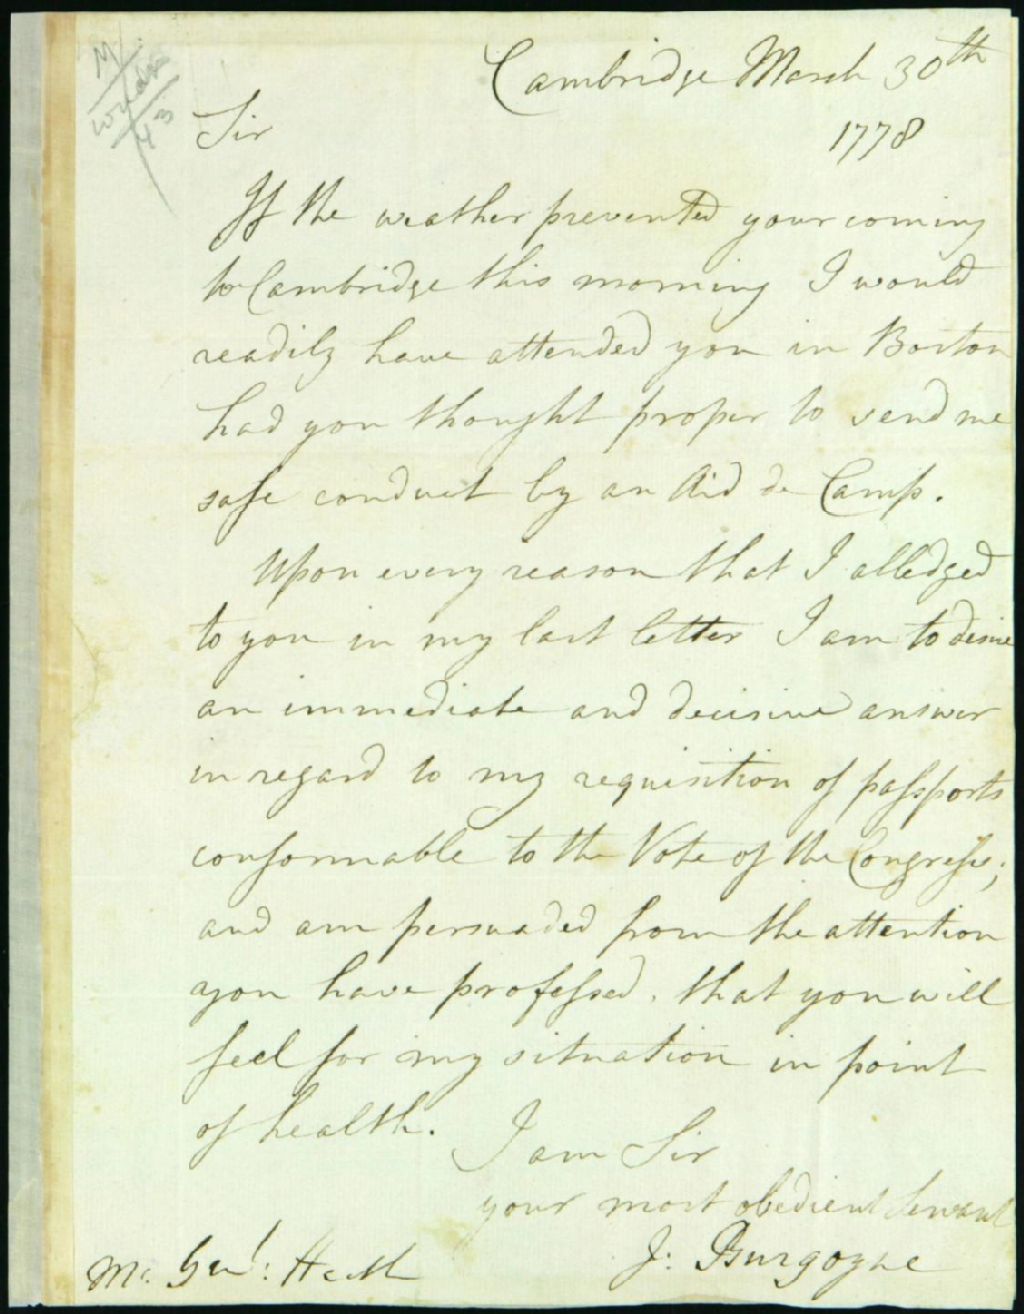 Cambridge March 30th
1778
Sir
If the weather prevented your coming
to Cambridge this morning I would
readily have attended you in Boston
had you thought proper to send me
safe conduct by an Aid de Camp.
Upon every reason that I alledged
to you in my last letter I am to desire
an immediate and decisive answer
in regard to my requisition of passports
conformable to the Vote of the Congress;
and am persuaded from the attention
you have professed, that you will
feel for my situation in point
of health.
I am Sir
your most obedient Servant
J: Burgoyne
M. Genl: Heath